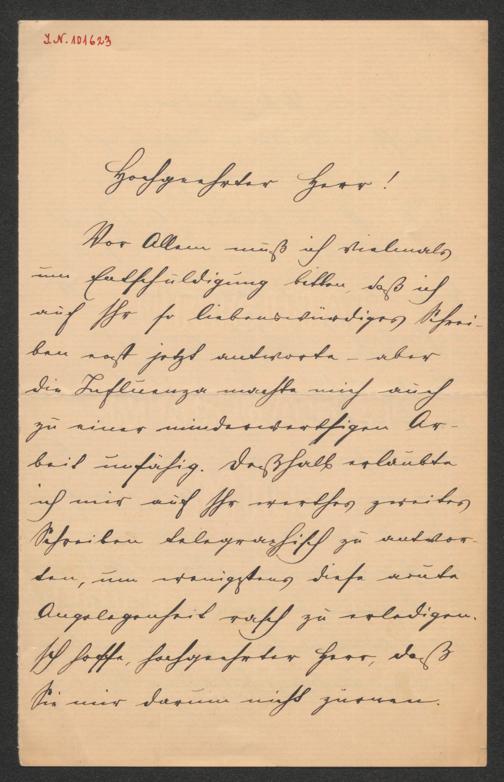 I.N. 101623
Hochgeehrter Herr!
Vor Allem muß ich vielmals
um Entschuldigung bitten, daß ich
auf Ihr so liebenswürdiges Schrei-
ben erst jetzt antworte – aber
die Influenza machte mich auch
zu einer minderwerthigen Ar-
beit unfähig. Deßhalb erlaubte
ich mir auf Ihr werthes zweites
Schreiben telegraphisch zu antwor-
ten, um wenigstens diese acute
Angelegenheit rasch zu erledigen.
Ich hoffe, hochgeehrter Herr, daß
Sie mir darum nicht zürnen.